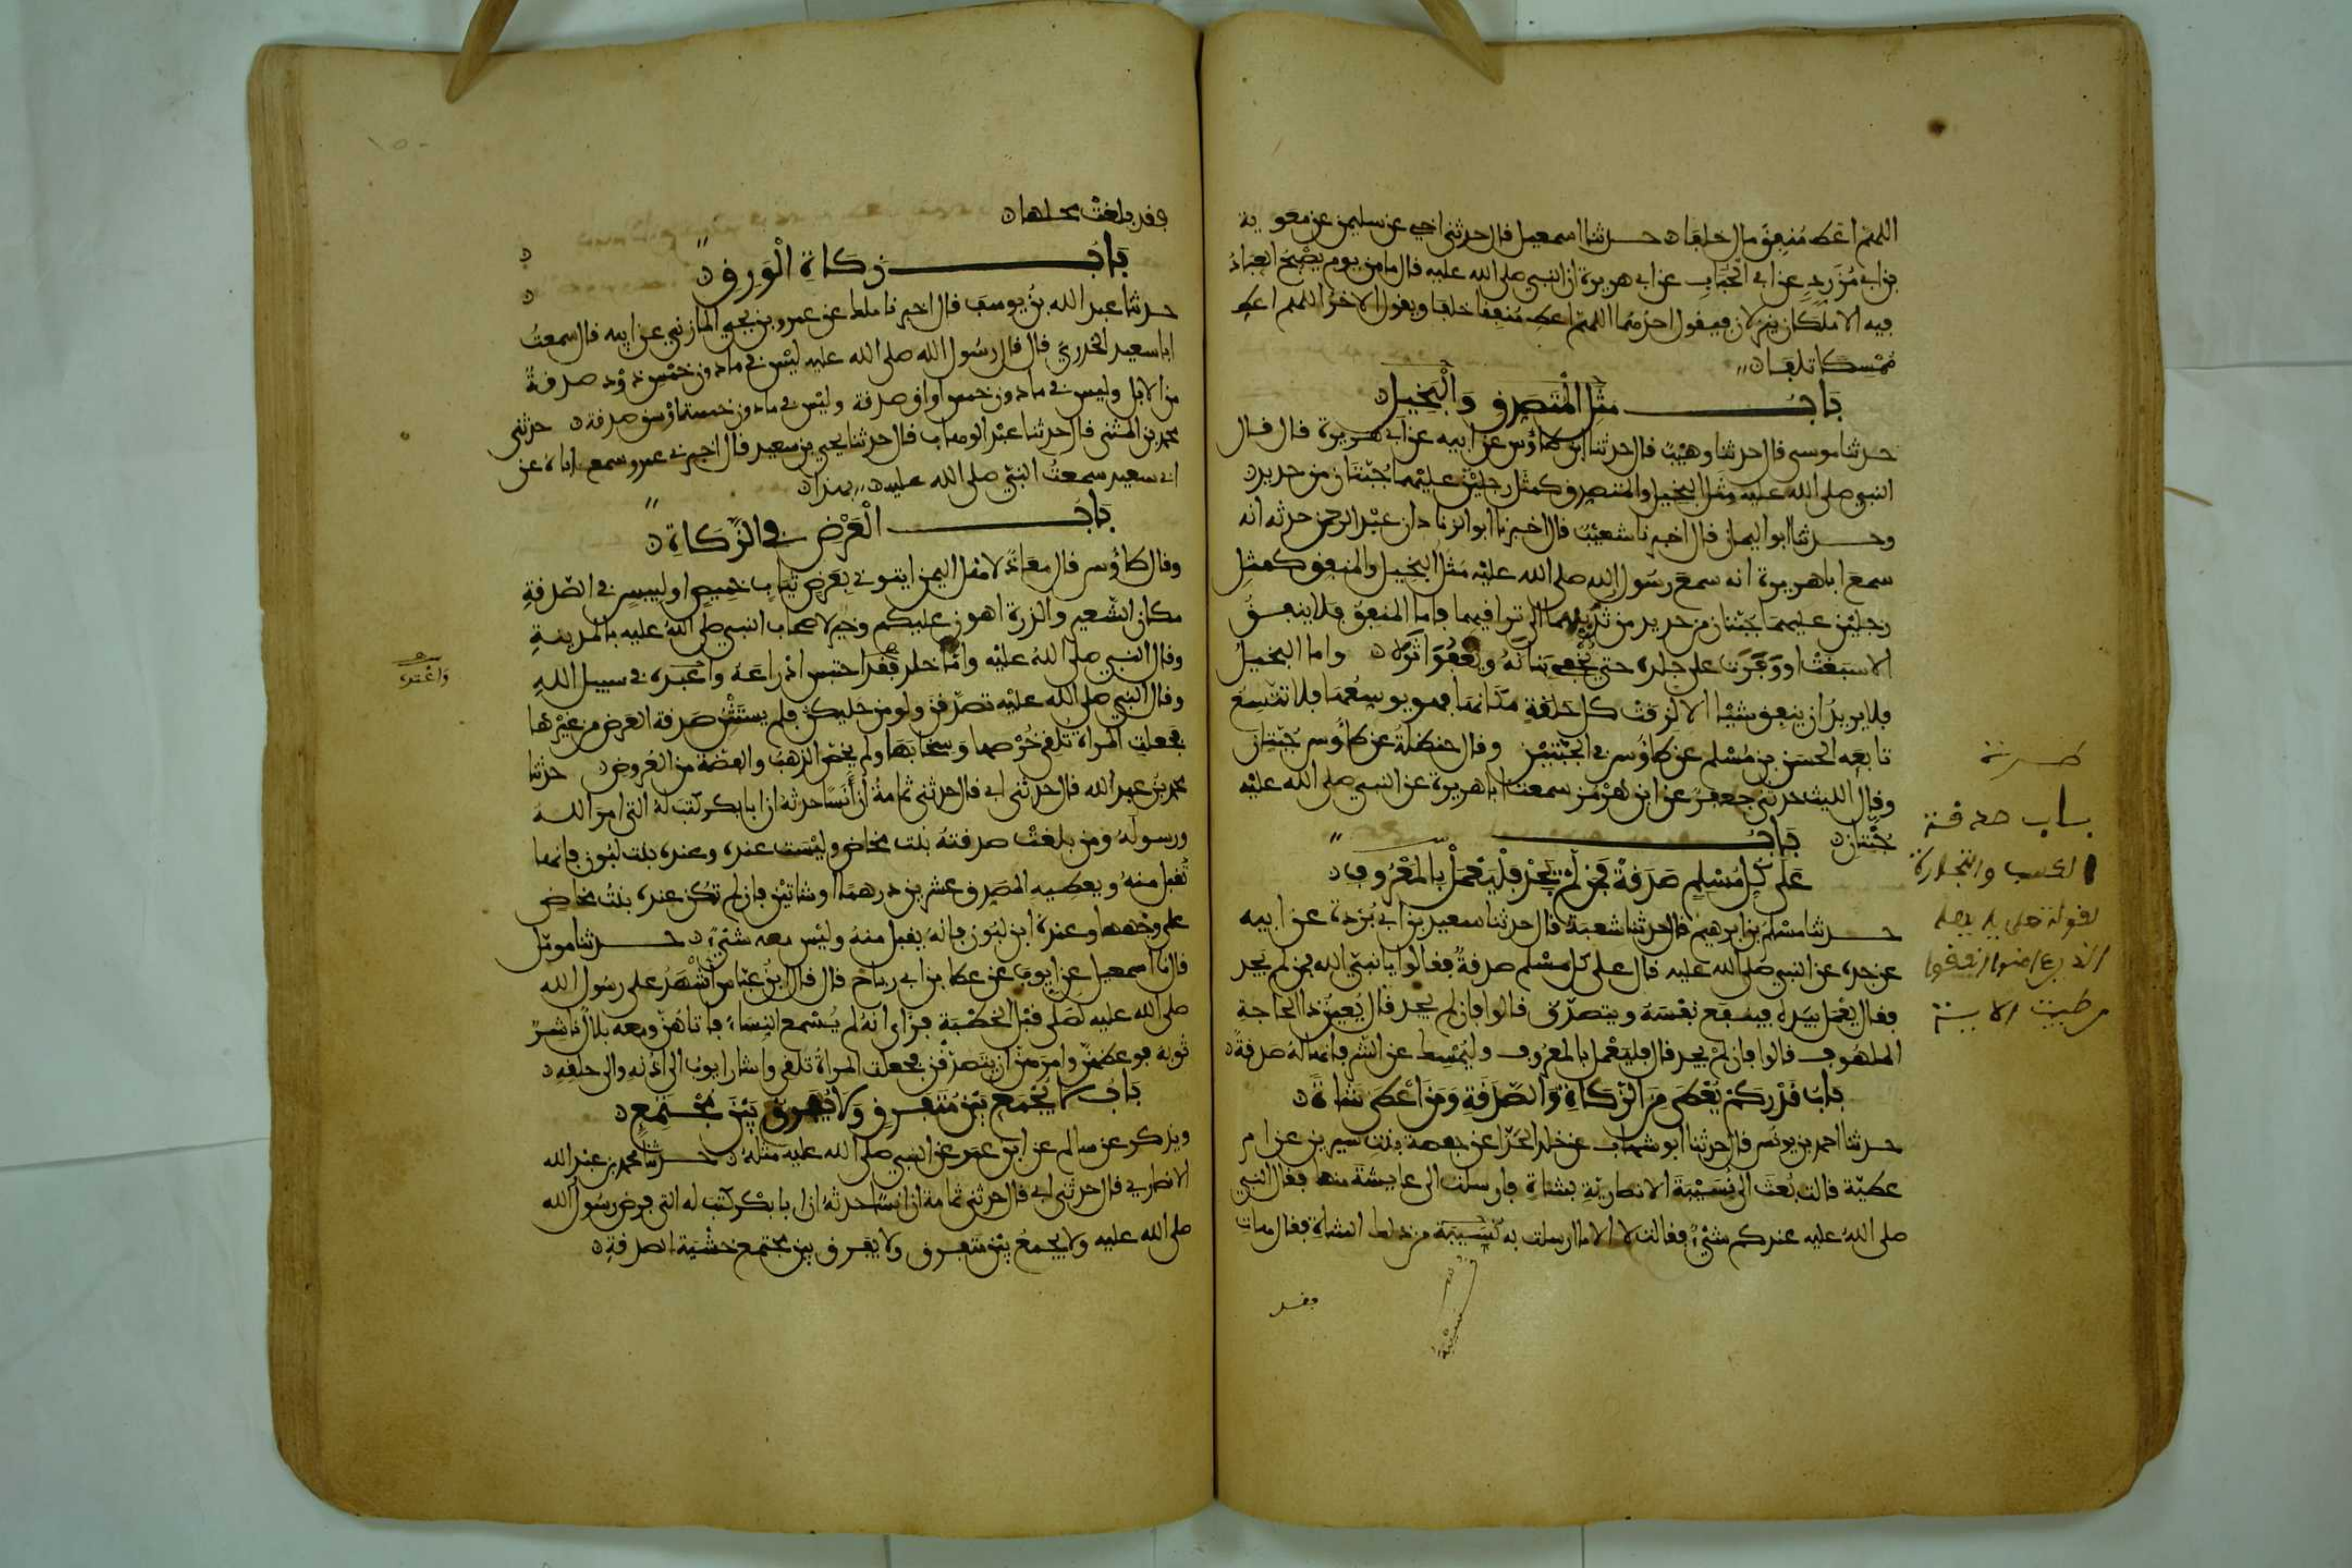 اللهم اعط منفق مال خلفا حـــدثنا اسمعيل قال حدثنى اخي عن سليمن عن معوية
بن ابي مُزَرِدٍ عن ابي الحُبَابِ عن ابي هريرة ان النبي صلى الله عليه قال ما من يوم يُصْبحُ العِبَادُ
فيه الا ملكان ينزلان فيقول احدُهُما اللهمّ اعطِ مُنفِقا خلفا ويقول الاخرُ اللهم اعطِ
مُمْسِكا تلفا
بَابُ مثلِ الْمتَصَدِقِ وَالْبَخِيلِ
حـدثنا موسى قال حدثنا وهَيْبٌ قال حدثنا ابن طاوُس عن ابيه عن ابي هريرة قال قال
النبي صلى الله عليه مثَل البخيل والمتصدق كمثَل رجليْن عليْهما جُبّتَان من حديد
وحـــدثنا ابو اليمان قال اخبرنا شعيْبٌ قال اخبرنا ابو الزناد ان عبْد الرحمن حدثه انه
سمعَ ابا هريرة انه سمعَ رسُول الله صلى الله عليْه مَثَل البخيل والمنفق كمثلِ
رجليْن عليهما جبّتان من حديد من ثديهما الى تراقيهما فاما المنفِقُ فلا ينفــقُ
الا سَبَغتْ او وَفَرَت على جلده حتى تُخْفِي بنانَهُ وتَعْفُوَ اثَرَه واما البخيلُ
فلا يريدُ ان ينفق شيْئا الا لزقتْ كل حَلقةٍ مكانَها فهو يوسِعُها فلا تتسعُ
تابعَه الحسَن بن مُسْلم عن طاوُس في الجبّتيْن وقال حنظلةُ عن طاوُس جُنّتان
وقال الليث حدثني جعفرٌ عن ابن هُرْمُز سمعت ابا هريرة عن النبي صلى الله عليْه
جُنّتان بَابُ
عَلَى كُلِّ مُسْلِمٍ صَدَقةٌ فمَن لَمْ يَجدْ فلْيَعْمَلْ بالمَعْرُوفِ
حـــدثنا مسْلم بن ابرهيم قال حدثنا شعبَة قال حدثنا سعيد بن ابي بُرْدةَ عن ابيه
عن جده عن النبي صلى الله عليه قال على كل مسْلم صدقةٌ فقالوا يا نبيّ الله فمن لم يجد
فقال يعْمَل بيَده فينفع نفْسَهُ ويتصدّق قالوا فان لم يجد قال يُعِينُ ذا الحاجة
الملهُوف قالوا فان لمْ يجد قال فليَعْمل بالمعرُوف وليُمْسِك عن الشّر فانها لَهُ صَدقةٌ
بَابُ قدْر كمْ يُعْطَى مِنَ الزّكَاةِ وَالصّدَقَةِ وَمَن اَعْطَى شَاةً
حـدثنا احمد بن يونُس قال حدثنا ابو شهاب عن خلد الحَذّا عن حفصة بنت سيرين عن ام
عطيّة قالت بُعِثَ الى نُسَيْبَةَ الانصاريّة بشاةٍ فارسلت الى عايشةَ منها فقال النبي
صلى الله عليه عندكم شىْءٌ فقالت لا الا ما ارسلت به نُسَيبَة من ذلك الشاة فقال هات
فقد
نُسَيْبَة
طـــرة
بــاب صدقة
الكسب والتجارة
لقوله تعلى يا ايها
الذين امنوا انفقوا
من طيبت الاية
فقد بلغتْ محلها
بَابُ زكَاةِ الْوَرِقِ
حـدثنا عبد الله بنُ يوسفَ قال اخبرنا ملك عن عمرو بن يحيى المازني عن ابيه قال سمعتُ
ابا سعيد الخدريَّ قال قال رسُول الله صلى الله عليه ليْس فى ما دون خمْس ذوْد صدقةٌ
من الابل وليس في ما دون خمس اواقٍ صدقة وليْس في ما دون خمسة اوْسُق صدقة حدثني
محمد بن المثنى قال حدثنا عبْد الوهاب قال حدثنا يحيى بن سعيد قال اخبرني عمرو سمع اباهُ عن
ابي سعيد سمعتُ النبيّ صلى الله عليه بهذا
بَابُ الْعَرْضِ في الزّكَاةِ
وقال طاوُس قال معَاذٌ لاهْل اليمن ايتوني بِعَرْضٍ ثيَابٍ خَمِيصٍ او لبيسٍ في الصّدقةِ
مكان الشّعير والذرة اهون عليكم وخير لاصحاب النبي صلى اللهُ عليه بالمدينـةِ
وقال النبي صلى اللهُ عليْه وامّا خلد فقَد احتبس ادْرَاعَهُ واعْبُدَه في سبيل اللهِ
وقال النبي صلى الله عليْه تصَدّقن ولو من حليكن فلم يسْتَثْنِ صَدقة العَرض من غيْرها
فجعلت المراة تلقى خُرْصها وسِخابَهَا ولم يخصّ الذهبَ والفضّة من العُروض حدثنا
محمد بنُ عبد الله قال حدثنى ابي قال حدثني ثمامةُ ان اَنَسًا حدثه ان ابا بكر كتبَ لهُ التي امرَ اللـه
ورسولهُ ومن بلغتْ صدقتهُ بنت مخاض وليْست عنده وعنده بنت لبُون فانها
تُقبل منهُ ويعطيه المصَدق عشرين درهمًا او شاتيْن فان لم تكن عنده بنتُ مخاض
على وجهها وعنده ابن لبُون فانه يقبل منهُ وليْس معه شىْءٌ حـــدثنا مومّل
قال نا اسمعيل عن ايوبَ عن عطا بن ابي رباح قال قال ابنُ عبّاس اشْهَدُ على رسُول الله
صلى الله عليه لصَلى قبْل الخطْبَة فرَاى انه لم يُسْمِع النسَاءَ فاتاهُنّ ومعه بلالٌ ناشرٌ
ثوبَهُ فوعظهُنّ وامرَهُنّ ان يتصدّقْن فجعلت المراةُ تُلقى واشار ايوبُ الى اذُنه والى حلقِهِ
بَابُ لا يُجْمَعُ بيْن مُتَفـرقٍ وَلا يُفرقُ بَيْنَ مُجْتَمِعٍ
ويذكر عن سالم عن ابن عمَر عن النبي صلى الله عليه مثلهُ حـــدثنا محمد بن عبْد الله
الانصاري قال حدثنى ابي قال حدثني ثمامة ان انسًا حدثهُ ان ابا بكْر كتب له التى فرض رسُول الله
صلى الله عليه ولا يجمعُ بيْن متفرق ولا يفرق بين مجتمع خشْيَة الصدقة
وَاعْتده